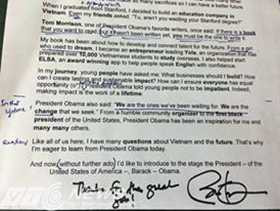 When I graduated from Stanford, I decided to build an education company in
Vietnam. Even my friends asked "Tu, aren't you wasting your Stanford degree?"
Toni Morrison, one of President Obama's favorite writers, once said, if there is a book
that you want to read, but it hasn't been written yet, you must be the one to write it.
My book has been about how to develop and connect talent for the future. From a girl
who used to dream, I became an entrepreneur leading Yola, an organization that
prepared over 70,000 Vietnamese students to study overseas. I also helped start
ELSA, an award winning app to help people speak English with confidence.
In my journey, young people have asked me: What businesses should I build? How
can I create lasting and sustainable impact? How can I ensure everyone has equal
opportunity to President Obama told young people not to be impatient. Indeed,
making impact is the work of a lifetime.
President Obama also said: "We are the ones we've been waiting for. We are the
change that we seek." From a humble community organizer to the first black
president of the United States, President Obama has been an inspiration for me and
many many others.
Like all of us here, I have many questions about Vietnam and the future. That's why
I'm eager to learn from President Obama today.
And now (without further ado) I'd like to introduce to the stage the President – of the
United States of America –, Barack – Obama.
Thanks for the great